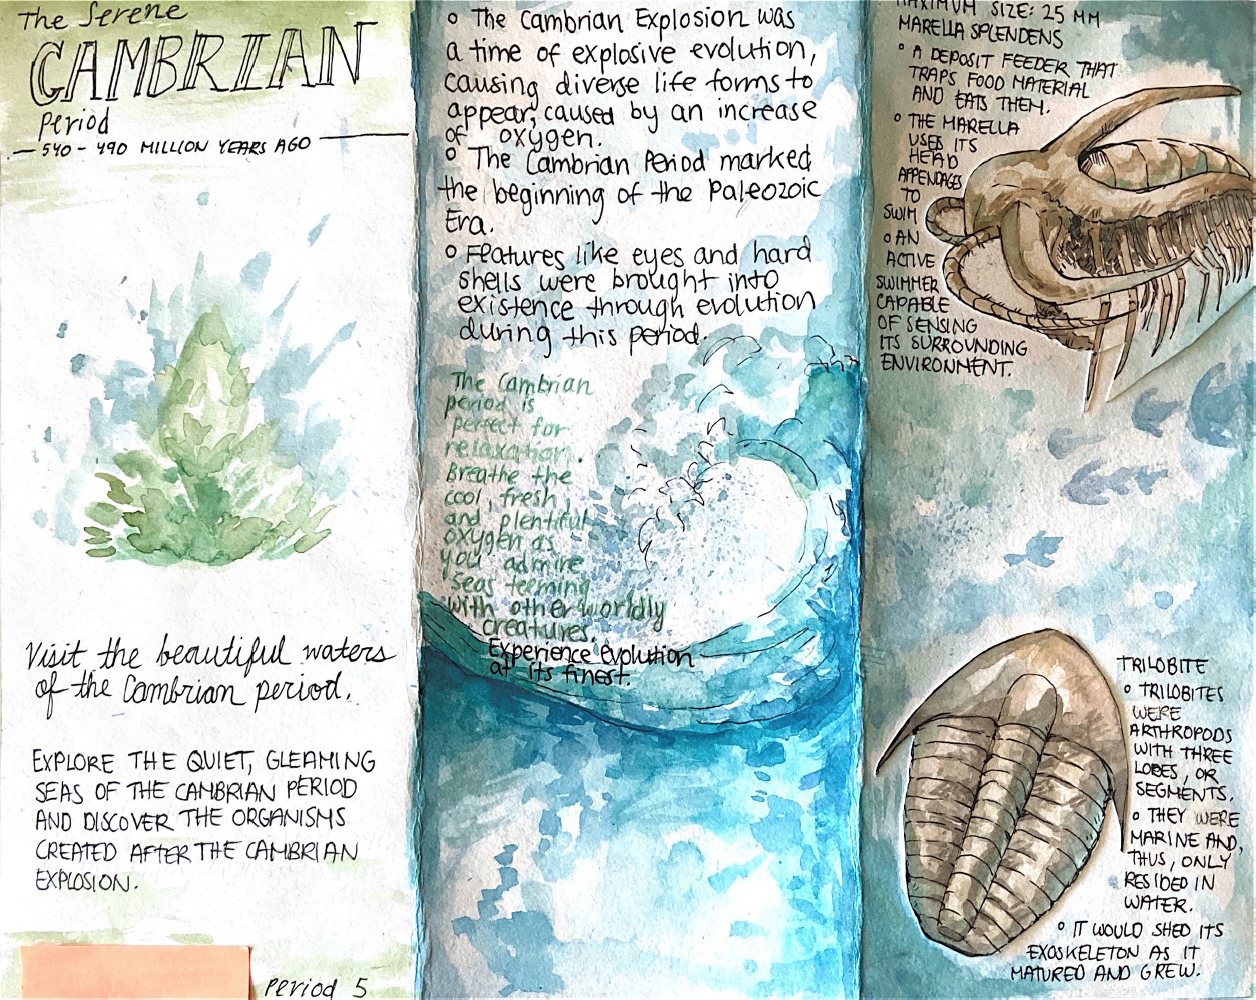 The Serene
CAMBRIAN
Period
540 - 490 MILLION YEARS AGO
Visit the beautiful waters
of the Cambrian period.
EXPLORE THE QUIET, GLEAMING
SEAS OF THE CAMBRIAN PERIOD
AND DISCOVER THE ORGANISMS
CREATED AFTER THE CAMBRIAN
EXPLOSION.
Period 5
o The Cambrian Explosion was
a time of explosive evolution,
causing diverse life forms to
appear, caused by an increase
of oxygen.
o The Cambrian Period marked
the beginning of the Paleozoic
Era.
o Features like eyes and hard
shells were brought into
existence through evolution
during this period.
The Cambrian
period is
perfect for
relaxation.
Breathe the
cool, fresh,
and plentiful
oxygen as
you admire
seas teeming
with other worldly
creatures.
Experience evolution
at its finest.
MAXIMUM SIZE: 25 MM
MARELLA SPLENDENS
o A DEPOSIT FEEDER THAT
TRAPS FOOD MATERIAL
AND EATS THEM.
o THE MARELLA
USES ITS
HEAD
APPENDAGES
TO
SWIM
o AN
ACTIVE
SWIMMER
CAPABLE
OF SENSING
ITS SURROUNDING
ENVIRONMENT.
TRILOBITE
o TRILOBITES
WERE
ARTHROPODS
WITH THREE
LOBES, OR
SEGMENTS.
o THEY WERE
MARINE AND,
THUS, ONLY
RESIDED IN
WATER.
o IT WOULD SHED ITS
EXOSKELETON AS IT
MATURED AND GREW.